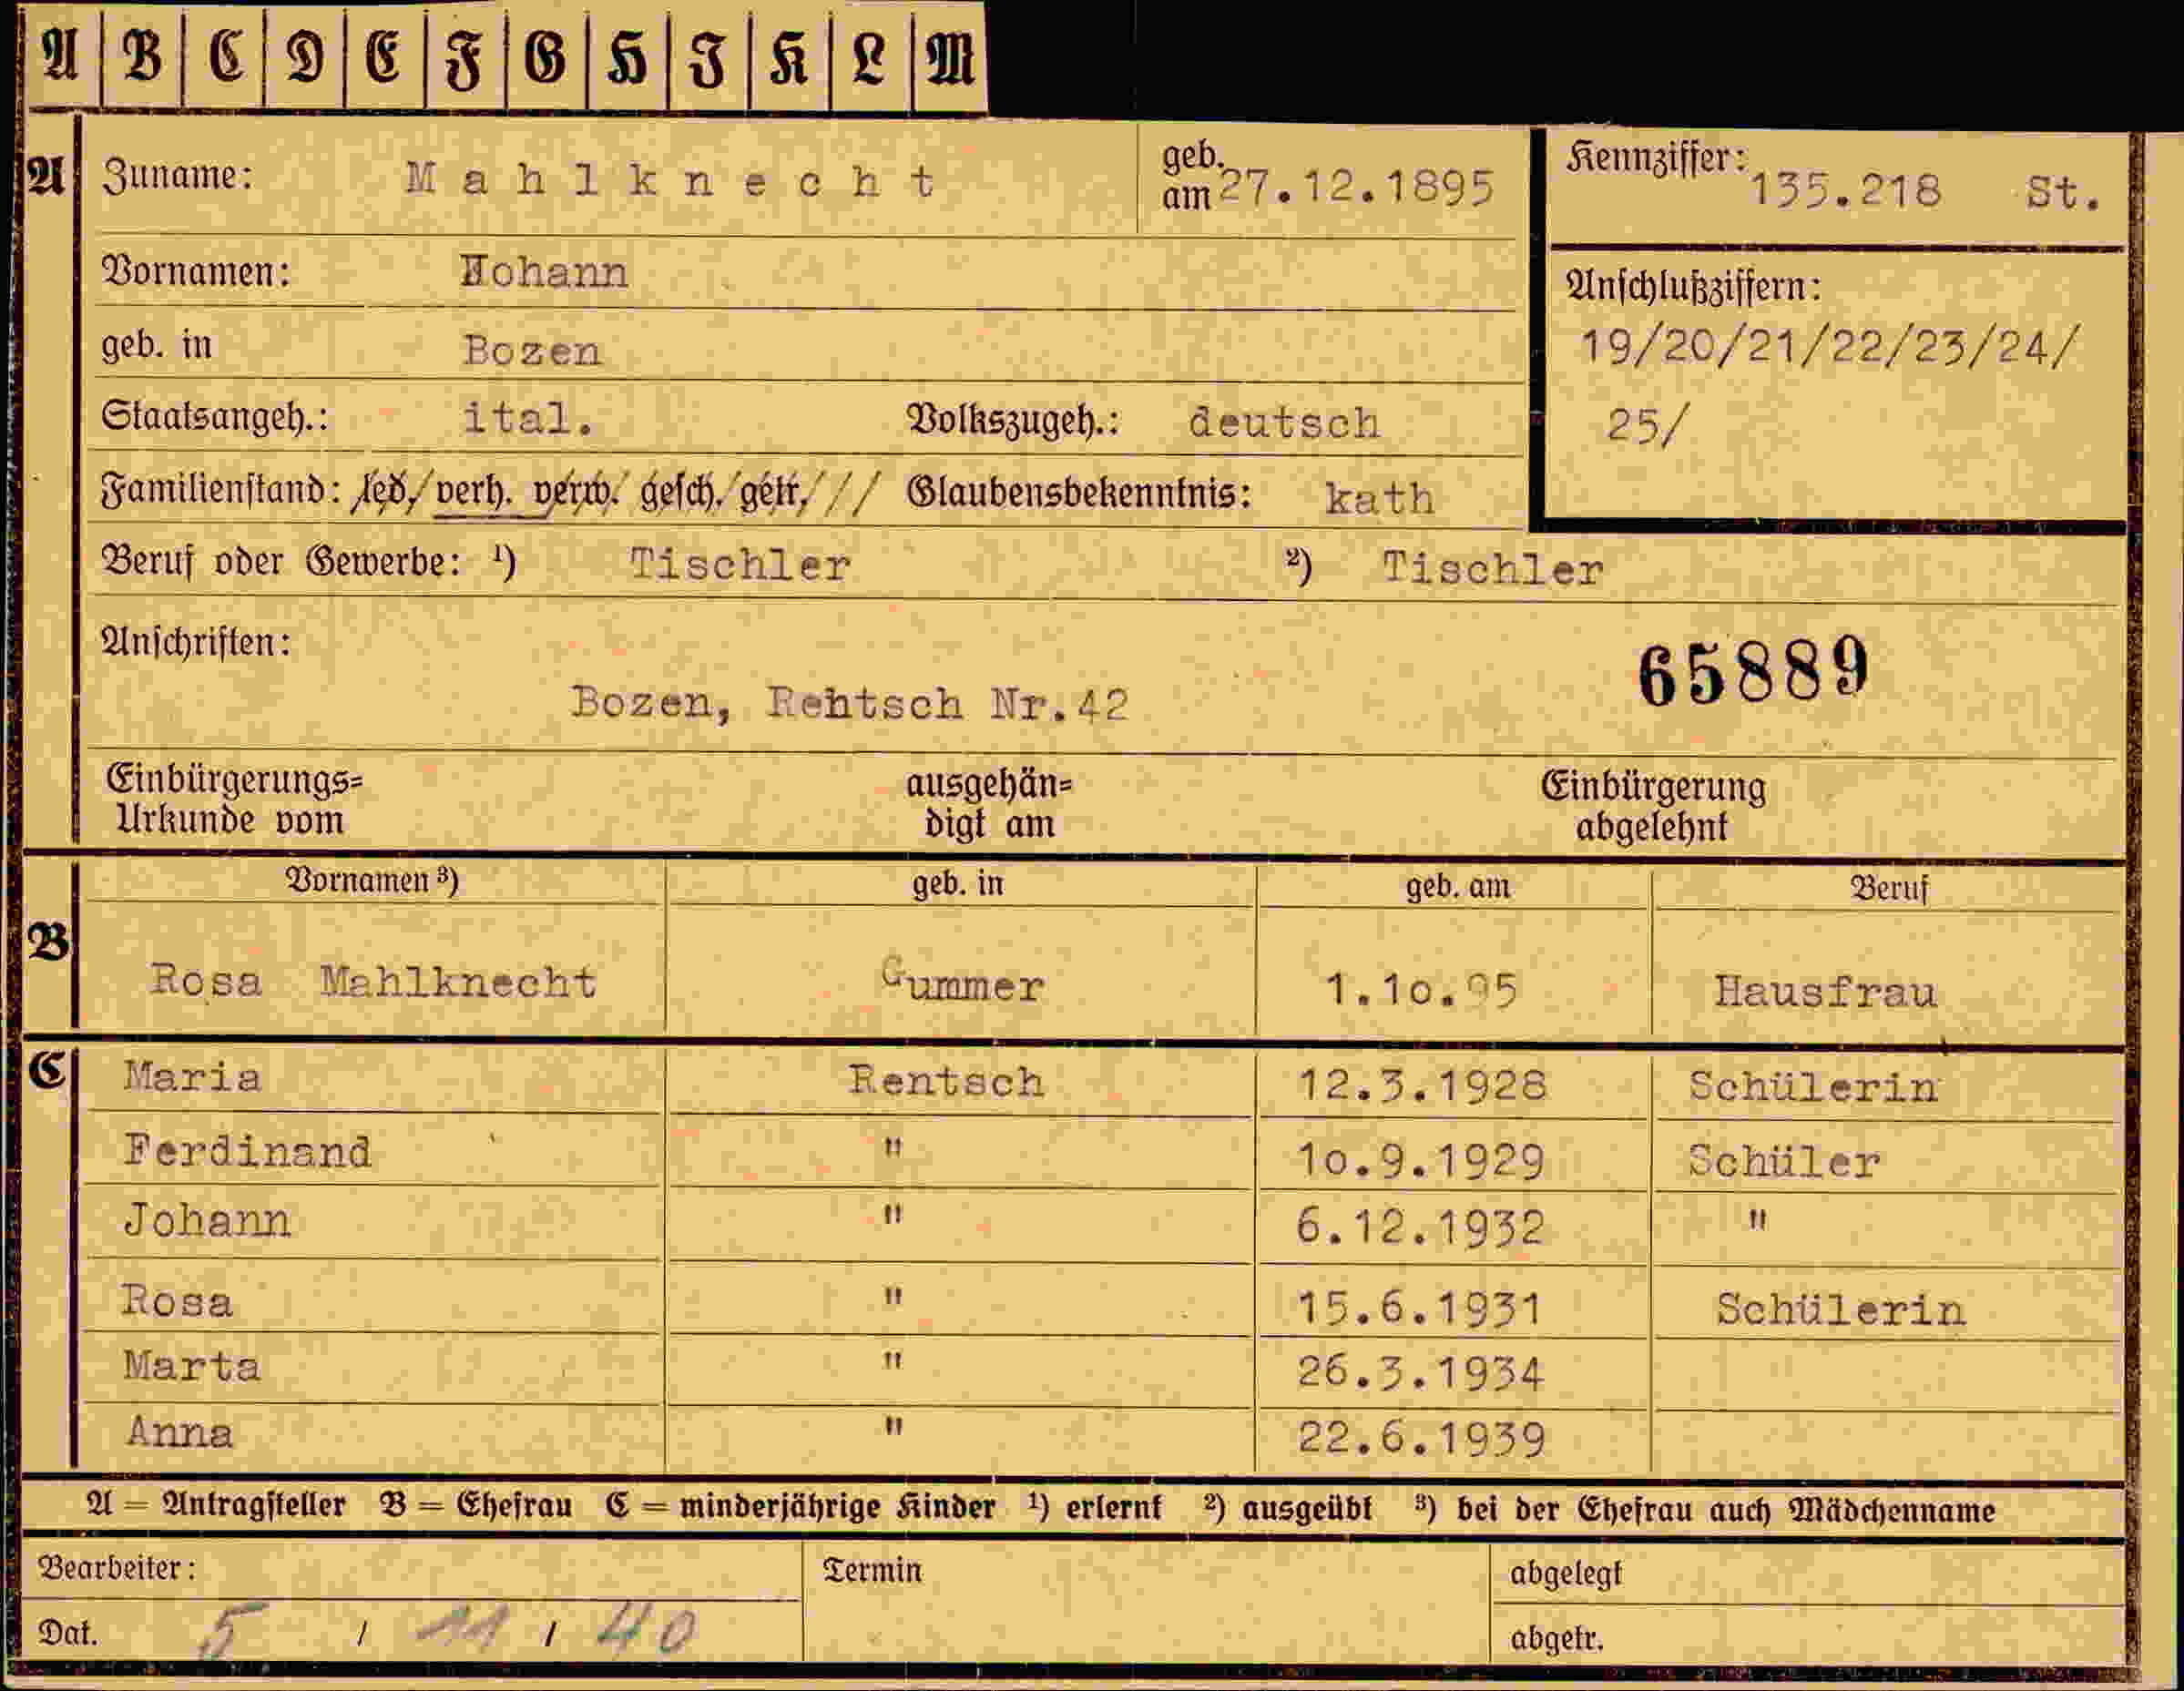 A B C D E F G H J K L M
A Zuname: Mahlknecht geb. am 27.12.1895 Kennziffer: 135.218 St.
Vornamen: Johann
Anschlußziffern:
geb. in Bozen 19/20/21/22/23/24/
Staatsangeh.: ital. Volkszugeh.: deutsch 25/
Familienstand: led. verh. verw. gesch. getr. /// Glaubensbekenntnis: kath
Beruf oder Gewerbe: ¹) Tischler ²) Tischler
Anschriften: 65889
Bozen, Rentsch Nr.42
Einbürgerungs= ausgehän= Einbürgerung
Urkunde vom digt am abgelehnt
Vornamen ³) geb. in geb. am Beruf
B Rosa Mahlknecht Gummer 1.10.95 Hausfrau
C Maria Rentsch 12.3.1928 Schülerin
Ferdinand " 10.9.1929 Schüler
Johann " 6.12.1932 "
Rosa " 15.6.1931 Schülerin
Marta " 26.3.1934
Anna " 22.6.1939
A = Antragsteller B = Ehefrau C = minderjährige Kinder ¹) erlernt ²) ausgeübt ³) bei der Ehefrau auch Mädchenname
Bearbeiter: Termin abgelegt
Dat. 5 / 11 / 40 abgetr.